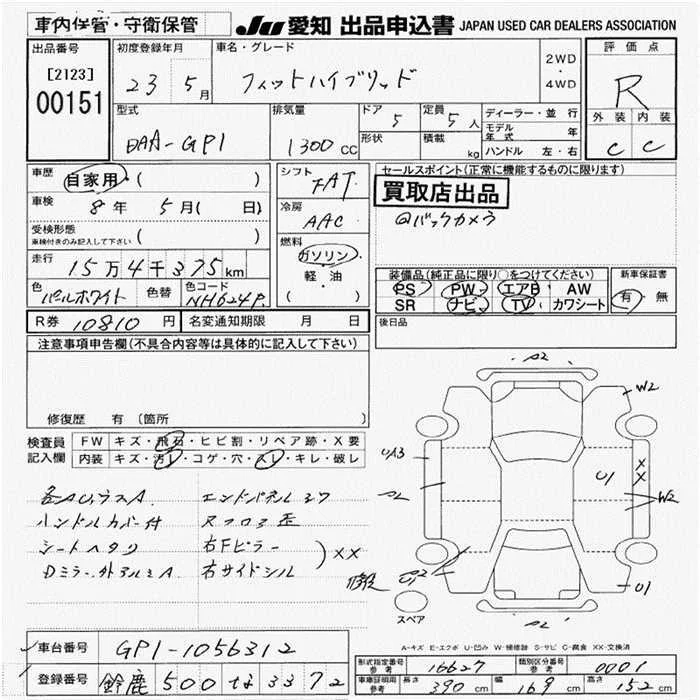 車内保管・守衛保管
JU 愛知 出品申込書 JAPAN USED CAR DEALERS ASSOCIATION
出品番号
[2123]
00151
初度登録年月
23 5月
車名・グレード
フィットハイブリッド
2WD
・
4WD
評価点
R
外装 内装
C C
型式
DAA-GP1
排気量
1300cc
ドア 5
定員 5人
形状
積載 kg
ディーラー・並行
モデル年式 年
ハンドル 左・右
車歴 自家用・( )
車検 8年 5月( 日)
受検形態
車検付きのみ記入して下さい ( )
走行 15万4千375km
色 パールホワイト 色替 色コード NH624P
シフト FAT
冷房 AAC
燃料
ガソリン
・
軽・油
( )
セールスポイント(正常に機能するものに限ります)
買取店出品
@バックカメラ
装備品(純正品に限り○をつけてください)
PS PW エアB AW
SR ナビ TV カワシート
新車保証書
有・無
R券 10810円 名変通知期限 月 日
後日品
注意事項申告欄(不具合内容等は具体的に記入して下さい)
修復歴 有 (箇所 )
検査員記入欄
FW キズ・飛石・ヒビ割・リペア跡・X要
内装 キズ・汚レ・コゲ・穴・スレ・キレ・破レ
エンドパネル
ハンドルカバー付
シートヘタリ 右Fピラー
右サイドシル
XX
A2
W2
UA3
A2
U1
X
X
W2
U1 A2
U1
A2
スペア
A-キズ E-エクボ U-凹み W-補修跡 S-サビ C-腐食 XX-交換済
車台番号 GP1-1056312
登録番号 鈴鹿 500 な 3372
形式指定番号 参考 16627 類別区分番号 参考 0001
車庫証明用 参考 長さ 390cm 幅 169cm 高さ 152cm